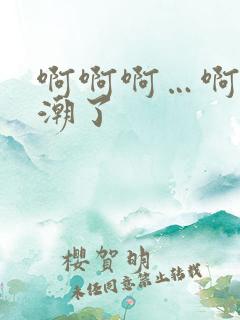 啊啊啊…啊
潮了
櫻賀明
未任同意禁止转载